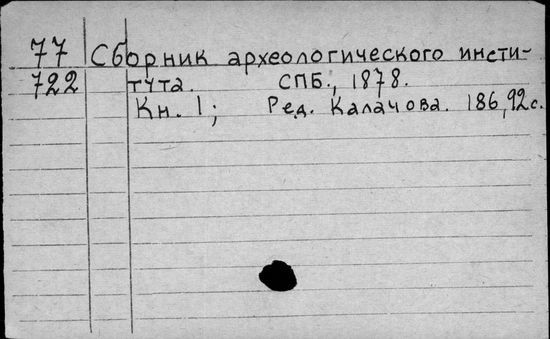 77 Сборник археологического инсти-
722 тута. СПБ., 1878.
Кн. 1; Ред. Калачова. 186,92с.